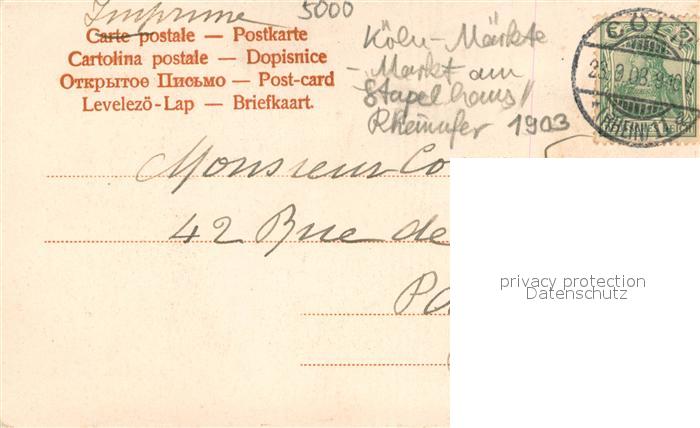 Imprime
5000
Carte postale — Postkarte
Cartolina postale — Dopisnice
Открытое Письмо — Post-card
Levelező-Lap — Briefkaart.
Köln-Märkte
- Markt am
Stapelhaus/
Rheinufer 1903
Monsieur Co
42 Rue de
Pa
privacy protection
Datenschutz